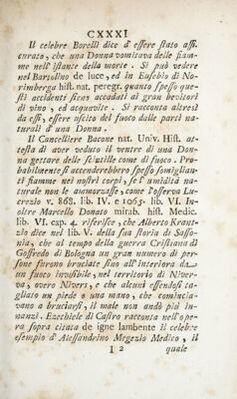 CXXXI
Il celebre Borelli dice d' essere stato assi-
curato, che una Donna vomitava delle fiam-
me nell' istante della morte. Si può vedere
nel Bartolino de luce, ed in Eusebio di No-
rimberga hist. nat. peregr. quanto spesso que-
sti accidenti sieno accaduti ai gran bevitori
di vino, ed acquavite. Si racconta altresì
da essi, essere uscito del fuoco dalle parti na-
turali d' una Donna.
Il Cancelliere Bacone nat. Univ. Hist. at-
testa di aver veduto il ventre di una Don-
na gettare delle scintille come di fuoco. Pro-
babilmente si accenderebbero spesso somiglian-
ti fiamme nei nostri corpi, se l' umidità na-
turale non le ammorzasse, come l' osserva Lu-
crezio v. 868. lib. IV. e 1065. lib. VI. In-
oltre Marcello Donato mirab. hist. Medic.
lib. VI. cap. 4. riferisce, che Alberto Krant-
zio dice nel lib. V. della sua storia di Sasso-
nia, che al tempo della guerra Cristiana di
Goffredo di Bologna un gran numero di per-
sone furono bruciate fino all' interiora da
un fuoco invisibile, nel territorio di Niver-
va, overo Nivers, e che alcuni essendosi ta-
gliato un piede o una mano, che comincia-
vano a bruciarsi, il male non andò più in-
nanzi. Ezechiele di Castro racconta nell' ope-
ra sopra citata de igne lambente il celebre
esempio d' Alessandrino Megezio Medico, il
I 2 quale